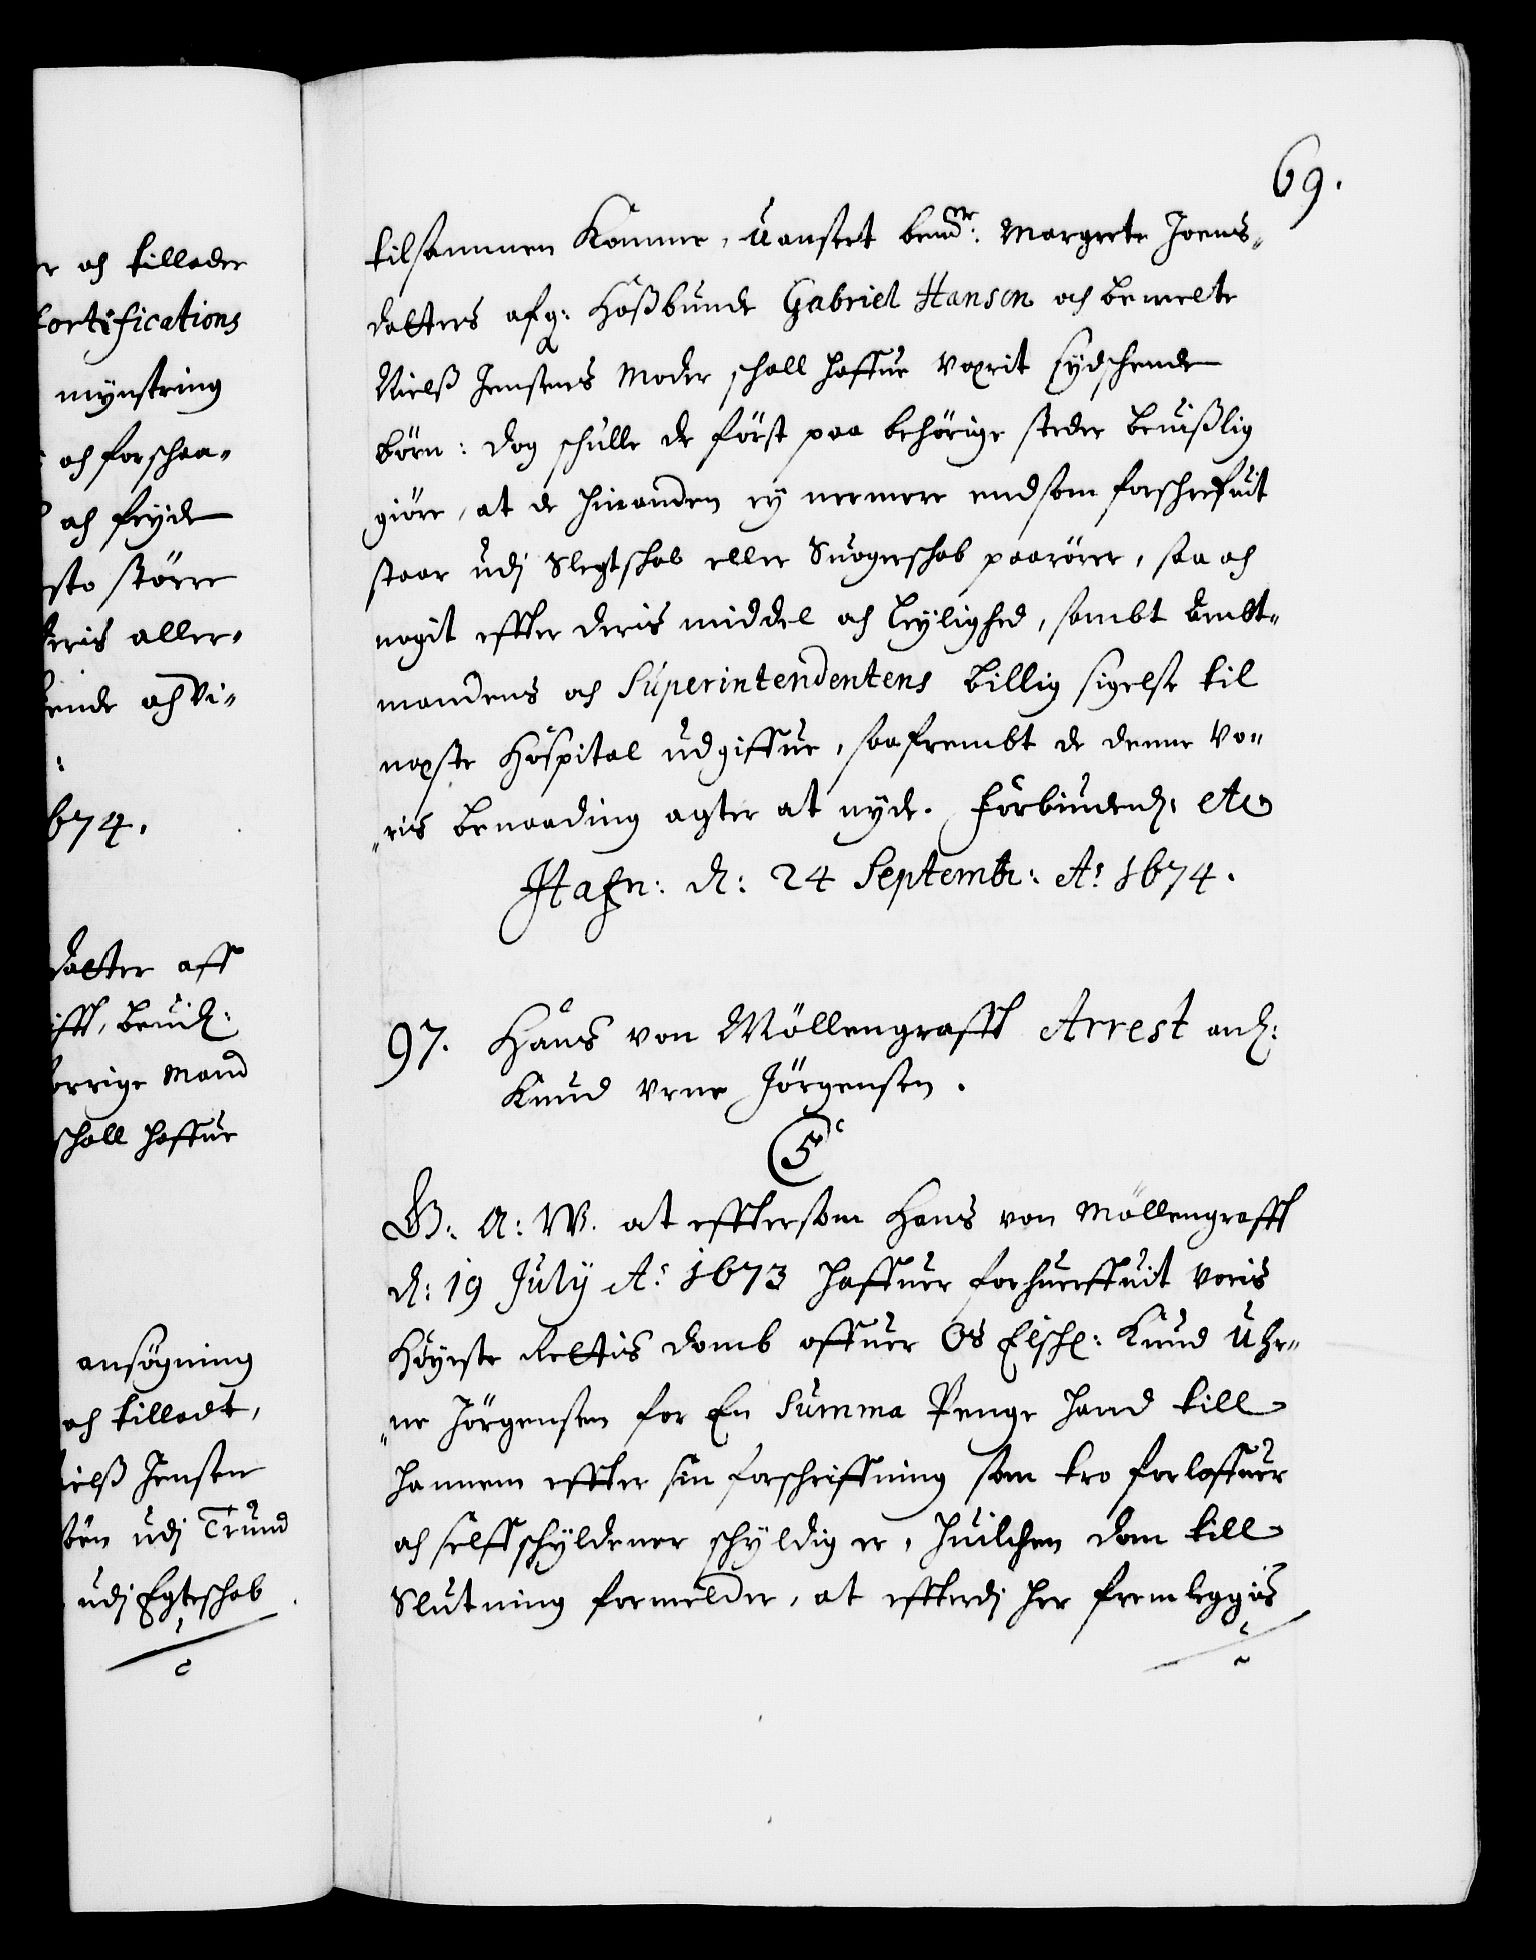 r och tillader
fortifications
mynstring
och forschaa-
och fryde
sto större
eris aller-
ende och Vi-
674.
datter aff
beuilg:
orrige Mand
schall haffue
ansögning
och tilladt,
ielß Jensen
udj Trund
udj Egteschab
69.
tilsammen Komme, Uanseet bemdr: Margrete Joens-
datters afg: Hoßbunde Gabriel Hansen och bemelte
Nielß Jensens Moder schall haffue Vaerit sydschende
börn: dog schulle de först paa behörige steder beuißlig
giöre, at de hinanden ey nermere end som forschrefuit
staar udj Slegtskab eller Suogerschab paarörer, saa och
nogit effter deris middel och leylighed, sambt Ambt-
mandens och Superintendentens billig sigelse til
næste Hospital udgiffue, saafrembt de denne Vo-
ris benaading agter at nyde. Forbiudend: etc
Hafn: d: 24 Septembr: Ao 1674.
97. Hans von Möllengrafft Arrest anl:
Knud Vrne Jörgensen.
C5
G: A: W. at efftersom Hans von Möllengrafft
d: 19 July Ao 1673 haffuer forhuerffuit Voris
Höyeste Rettis domb offuer Os Elsch: Knud Uhr-
ne Jörgensen for En Summa Penge hand till
hannem effter sin forschriffning som tro forloffuer
och selffschyldener schyldig er, huilchen dom till
Slutning formelder, at effterdj her fremleggis